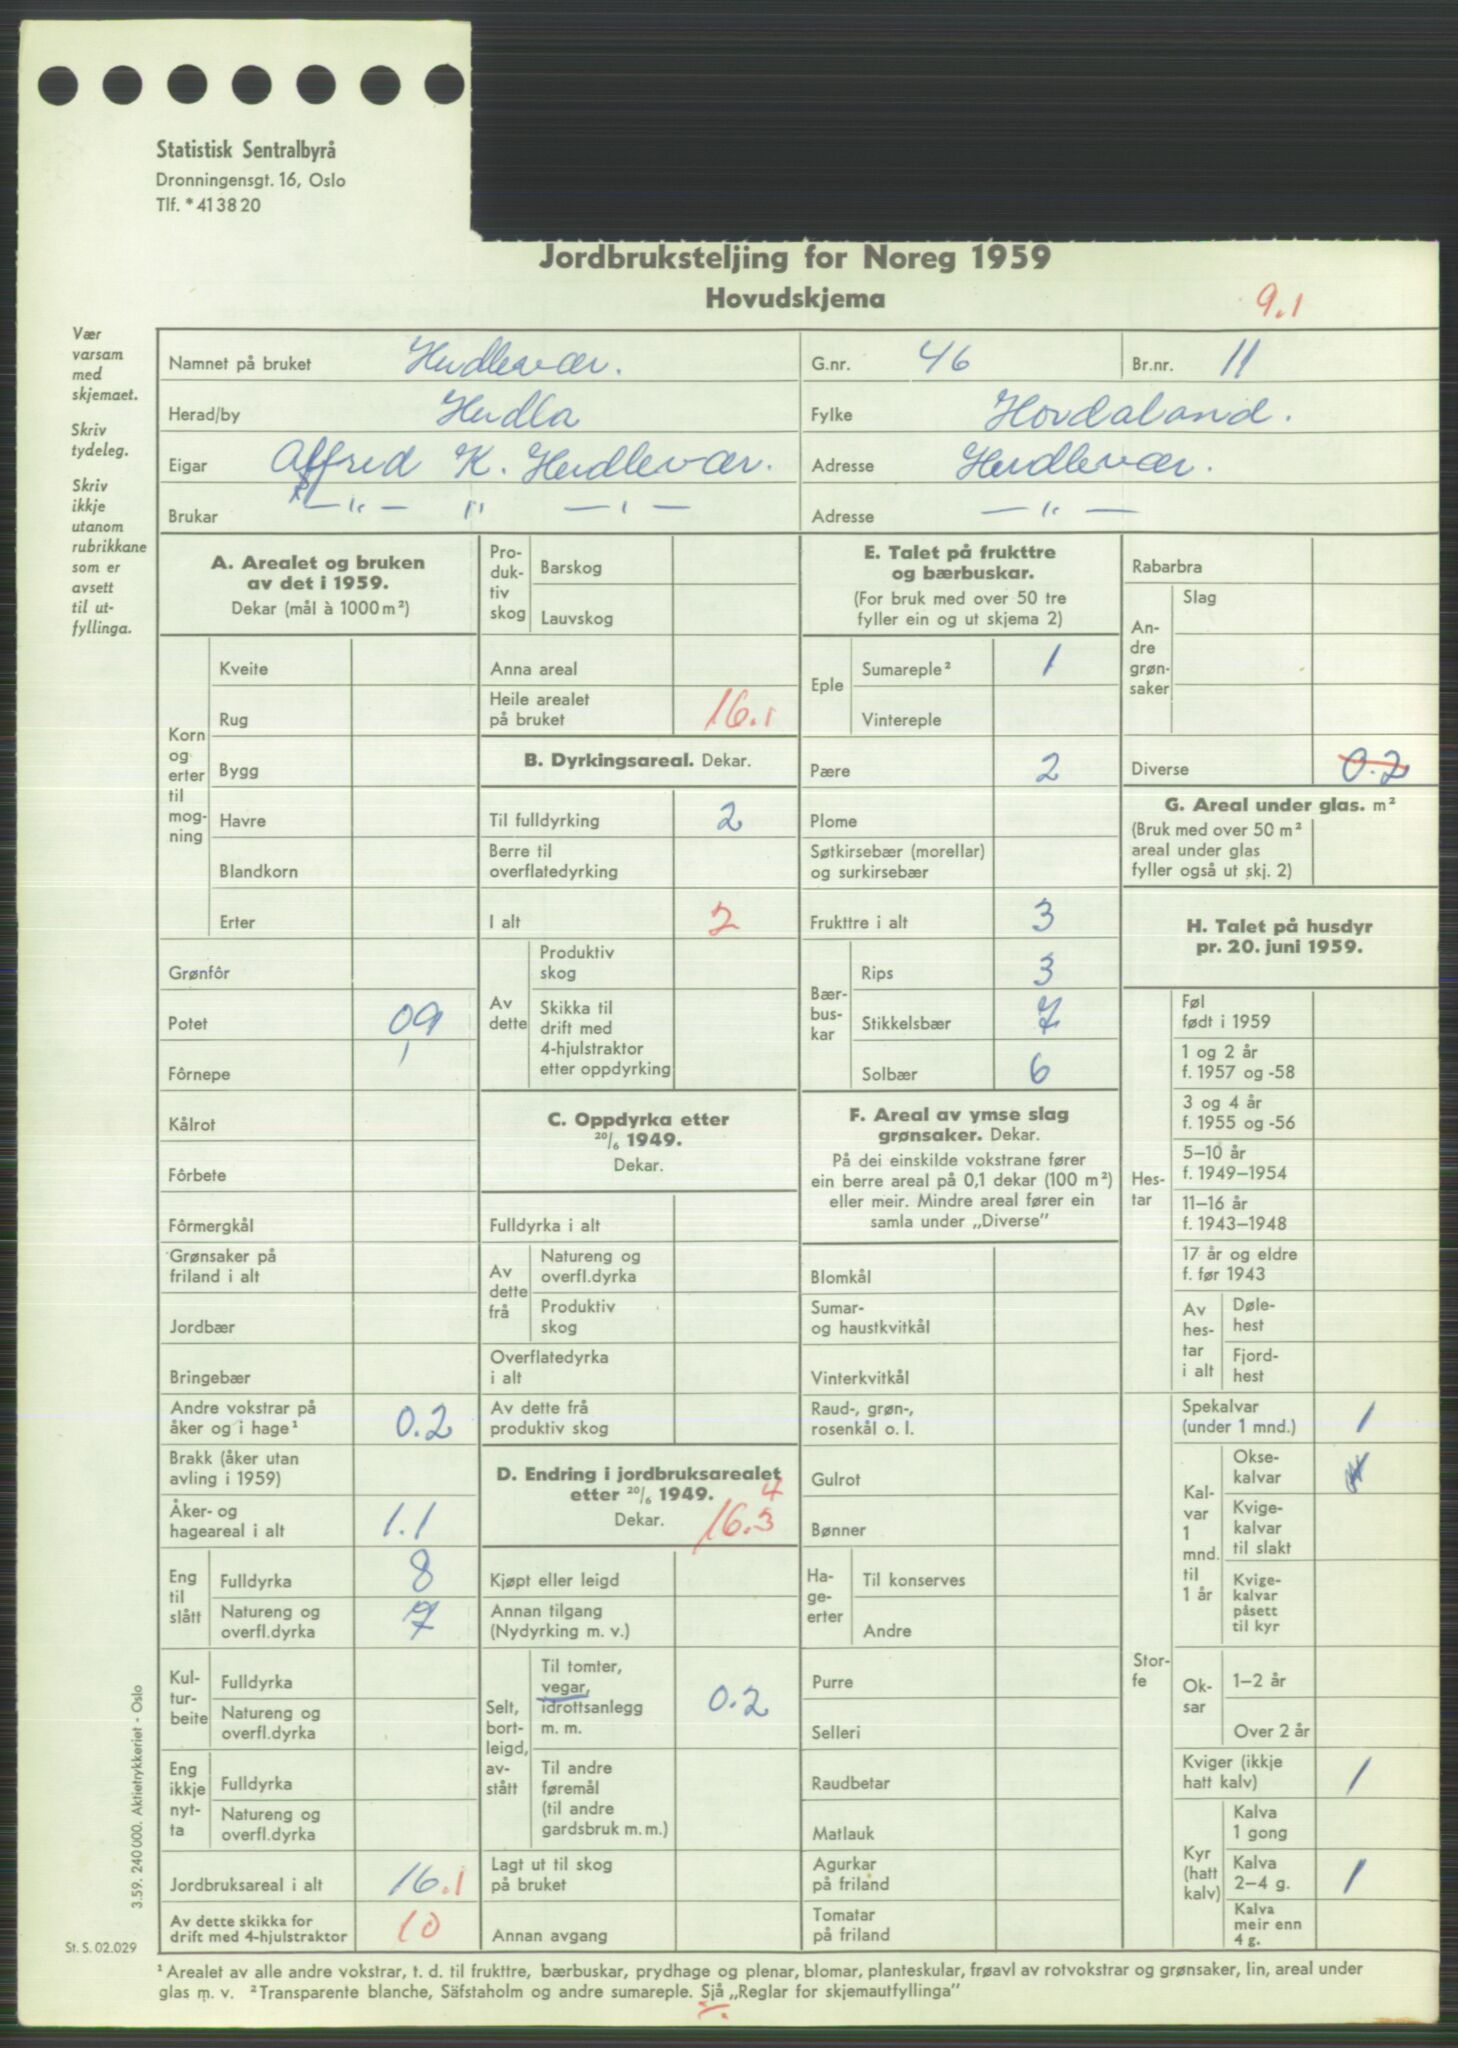 Statistisk Sentralbyrå
Dronningensgt. 16, Oslo
Tlf. * 41 38 20
Jordbruksteljing for Noreg 1959
Hovudskjema
9.1
Vær
varsam
med
skjemaet.
Skriv
tydeleg.
Skriv
ikkje
utanom
rubrikkane
som er
avsett
til ut-
fyllinga.
Namnet på bruket Herdlevær.
G.nr. 46 Br.nr. 11
Herad/by Herdla
Fylke Hordaland.
Eigar Alfred K. Herdlevær.
Adresse Herdlevær.
Brukar — " — " — " —
Adresse — " —
A. Arealet og bruken
av det i 1959.
Dekar (mål à 1000 m²)
Korn
og
erter
til
mog-
ning
Kveite
Rug
Bygg
Havre
Blandkorn
Erter
Grønfôr
Potet 0,9
Fôrnepe
Kålrot
Fôrbete
Fôrmergkål
Grønsaker på
friland i alt
Jordbær
Bringebær
Andre vokstrar på
åker og i hage¹ 0.2
Brakk (åker utan
avling i 1959)
Åker- og
hageareal i alt 1.1
Eng
til
slått
Fulldyrka 8
Natureng og
overfl.dyrka 7
Kul-
tur-
beite
Fulldyrka
Natureng og
overfl.dyrka
Eng
ikkje
nyt-
ta
Fulldyrka
Natureng og
overfl.dyrka
Jordbruksareal i alt 16.1
Av dette skikka for
drift med 4-hjulstraktor 10
Pro-
duk-
tiv
skog
Barskog
Lauvskog
Anna areal
Heile arealet
på bruket 16.1
B. Dyrkingsareal. Dekar.
Til fulldyrking 2
Berre til
overflatedyrking
I alt 2
Av
dette
Produktiv
skog
Skikka til
drift med
4-hjulstraktor
etter oppdyrking
C. Oppdyrka etter
20/6 1949.
Dekar.
Fulldyrka i alt
Av
dette
frå
Natureng og
overfl.dyrka
Produktiv
skog
Overflatedyrka
i alt
Av dette frå
produktiv skog
D. Endring i jordbruksarealet
etter 20/6 1949. 4
Dekar. 16.3
Kjøpt eller leigd
Annan tilgang
(Nydyrking m. v.)
Selt,
bort-
leigd,
av-
stått
Til tomter,
vegar,
idrottsanlegg
m. m. 0.2
Til andre
føremål
(til andre
gardsbruk m. m.)
Lagt ut til skog
på bruket
Annan avgang
E. Talet på frukttre
og bærbuskar.
(For bruk med over 50 tre
fyller ein og ut skjema 2)
Eple
Sumareple² 1
Vintereple
Pære 2
Plome
Søtkirsebær (morellar)
og surkirsebær
Frukttre i alt 3
Bær-
bus-
kar
Rips 3
Stikkelsbær 7
Solbær 6
F. Areal av ymse slag
grønsaker. Dekar.
På dei einskilde vokstrane fører
ein berre areal på 0,1 dekar (100 m²)
eller meir. Mindre areal fører ein
samla under „Diverse”
Blomkål
Sumar-
og haustkvitkål
Vinterkvitkål
Raud-, grøn-,
rosenkål o. l.
Gulrot
Bønner
Ha-
ge-
erter
Til konserves
Andre
Purre
Selleri
Raudbetar
Matlauk
Agurkar
på friland
Tomatar
på friland
Rabarbra
An-
dre
grøn-
saker
Slag
Diverse 0.2
G. Areal under glas. m²
(Bruk med over 50 m²
areal under glas
fyller også ut skj. 2)
H. Talet på husdyr
pr. 20. juni 1959.
Hes-
tar
Føl
født i 1959
1 og 2 år
f. 1957 og -58
3 og 4 år
f. 1955 og -56
5–10 år
f. 1949–1954
11–16 år
f. 1943–1948
17 år og eldre
f. før 1943
Av
hes-
tar
i alt
Døle-
hest
Fjord-
hest
Stor-
fe
Spekalvar
(under 1 mnd.) 1
Kal-
var
1
mnd.
til
1 år
Okse-
kalvar
Kvige-
kalvar
til slakt
Kvige-
kalvar
påsett
til kyr
Ok-
sar
1–2 år
Over 2 år
Kviger (ikkje
hatt kalv) 1
Kyr
(hatt
kalv)
Kalva
1 gong
Kalva
2–4 g. 1
Kalva
meir enn
4 g.
3.59. 240 000. Aktietrykkeriet - Oslo
St. S. 02.029
¹ Arealet av alle andre vokstrar, t. d. til frukttre, bærbuskar, prydhage og plenar, blomar, planteskular, frøavl av rotvokstrar og grønsaker, lin, areal under
glas m. v. ² Transparente blanche, Säfstaholm og andre sumareple. Sjå „Reglar for skjemautfyllinga”